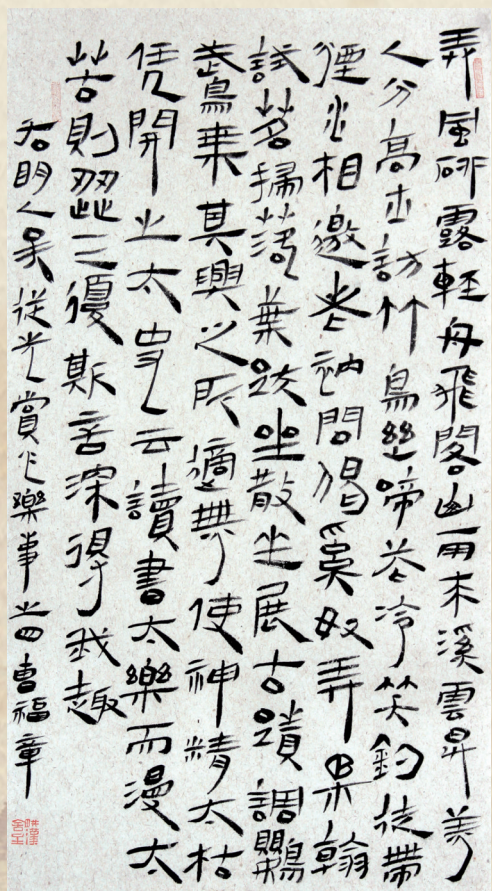 弄風研露輕舟飛閣山雨来溪雲昇美
人分高士訪竹鳥幽啼花冷笑釣徒帶
煙水相邀老衲問偈奚奴弄柔翰
試茗掃落葉趺坐散坐展古蹟調鸚
鵡乘其興之所適無使神精太枯
凭開之太史云讀書太樂而漫太
苦則歰三復斯言深得我趣
右明人吳從先賞心樂事之四曹福章